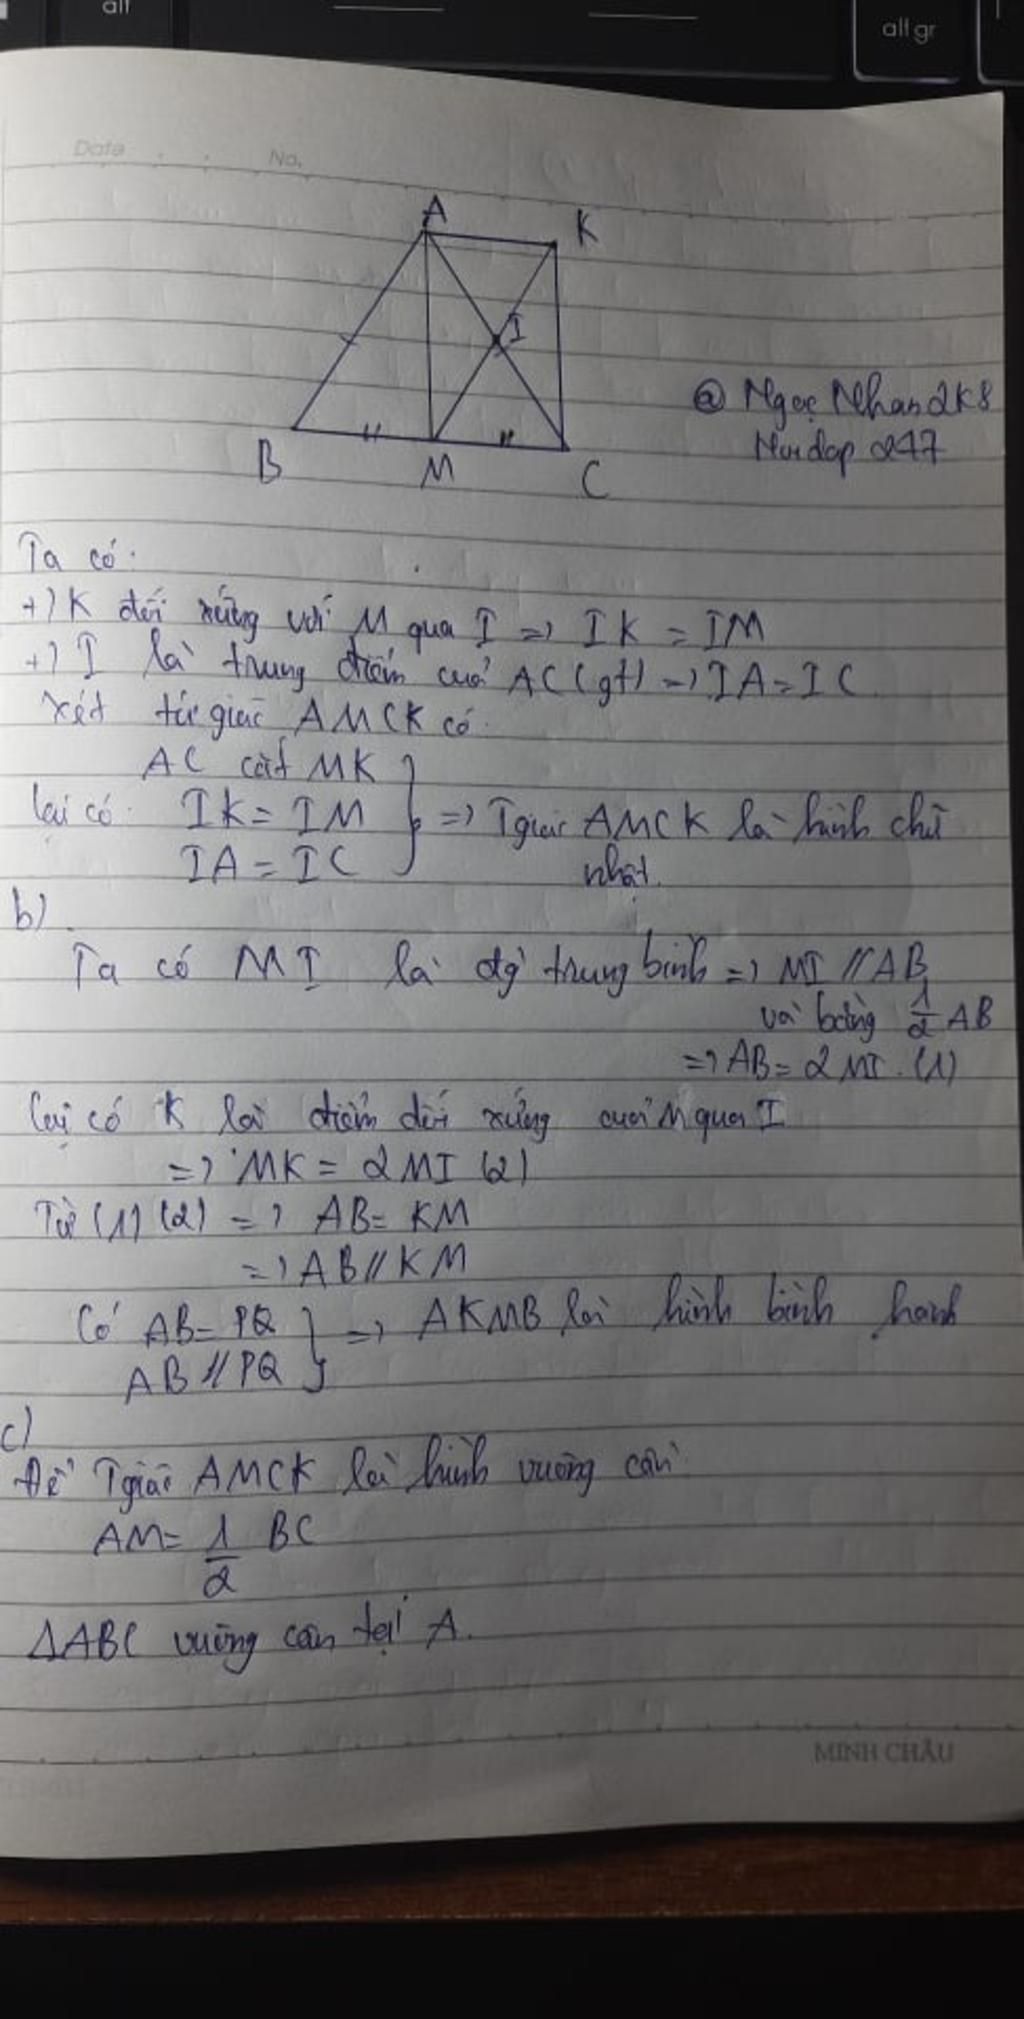 alt
alt gr
Date . . No.
A
K
I
B
M
C
@ Ngọc Nhan2K8
Hoidap 247
Ta có:
+) K đối xứng với M qua I => IK = IM
+) I là trung điểm của AC (gt) => IA = IC
xét tứ giác AMCK có:
AC cắt MK
lại có: IK = IM } => Tgiác AMCK là hình chữ
IA = IC nhật.
b)
Ta có MI là đg trung bình => MI // AB
và bằng 1/2 AB
=> AB = 2 MI. (1)
lại có K là điểm đối xứng của M qua I
=> MK = 2 MI (2)
Từ (1) (2) => AB = KM
=> AB // KM
Có AB = PQ } => AKMB là hình bình hành
AB // PQ
c)
Để Tgiác AMCK là hình vuông cần
AM = 1/2 BC
ΔABC vuông cân tại A.
MINH CHÂU